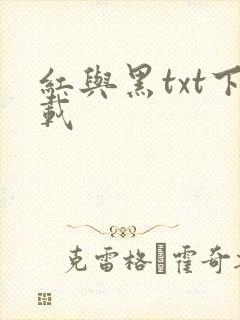 紅與黑txt下
載
克雷格·霍奇